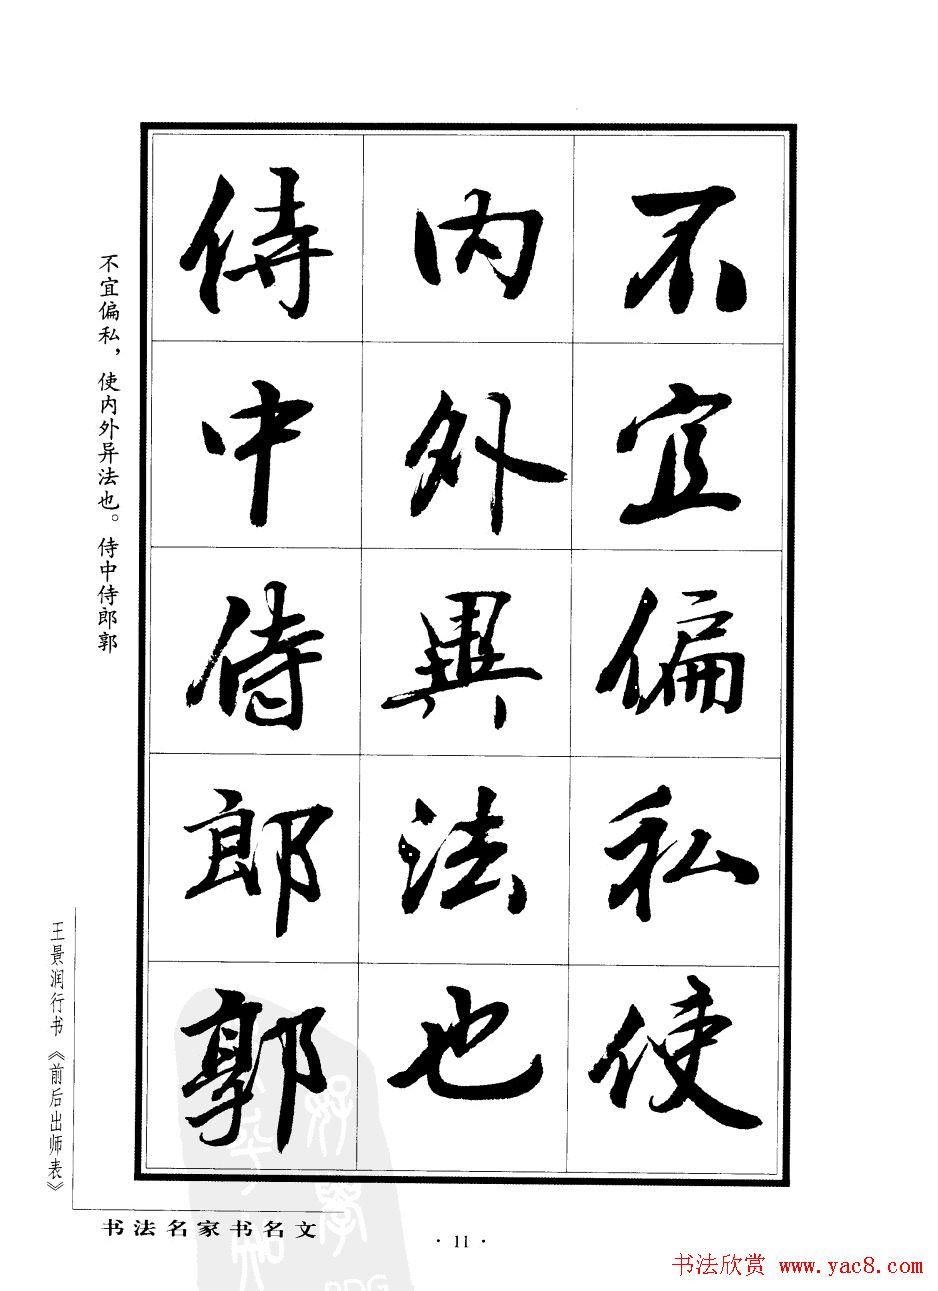 不宜偏私使
内外異法也
侍中侍郎郭
不宜偏私，使内外异法也。侍中侍郎郭
王景润行书《前后出师表》
书法名家书名文
·11·
书法欣赏 www.yac8.com